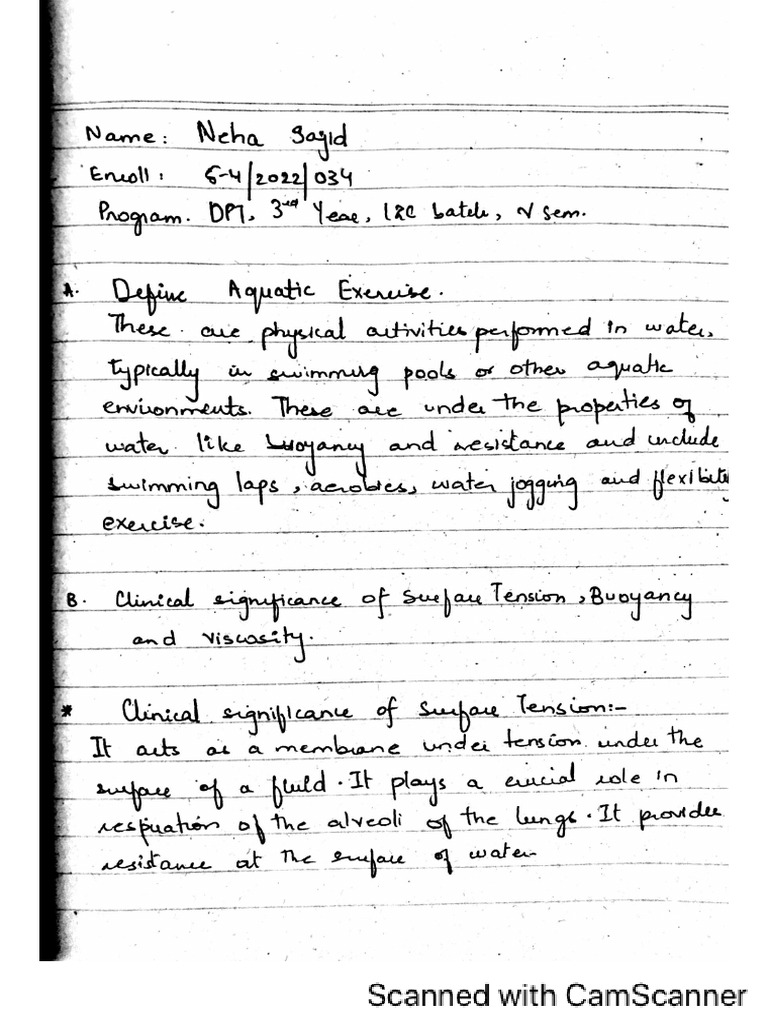 Name: Neha Sajid
Enroll: S-4/2022/034
Program. DPT, 3rd Year, LRC batch, V sem.
A. Define Aquatic Exercise.
These are physical activities performed in water,
typically in swimming pools or other aquatic
environments. These are under the properties of
water like buoyancy and resistance and include
swimming laps, aerobics, water jogging and flexibility
exercise.
B. Clinical significance of Surface Tension, Buoyancy
and viscosity.
* Clinical significance of Surface Tension:-
It acts as a membrane under tension under the
surface of a fluid. It plays a crucial role in
respiration of the alveoli of the lungs. It provides
resistance at the surface of water
Scanned with CamScanner